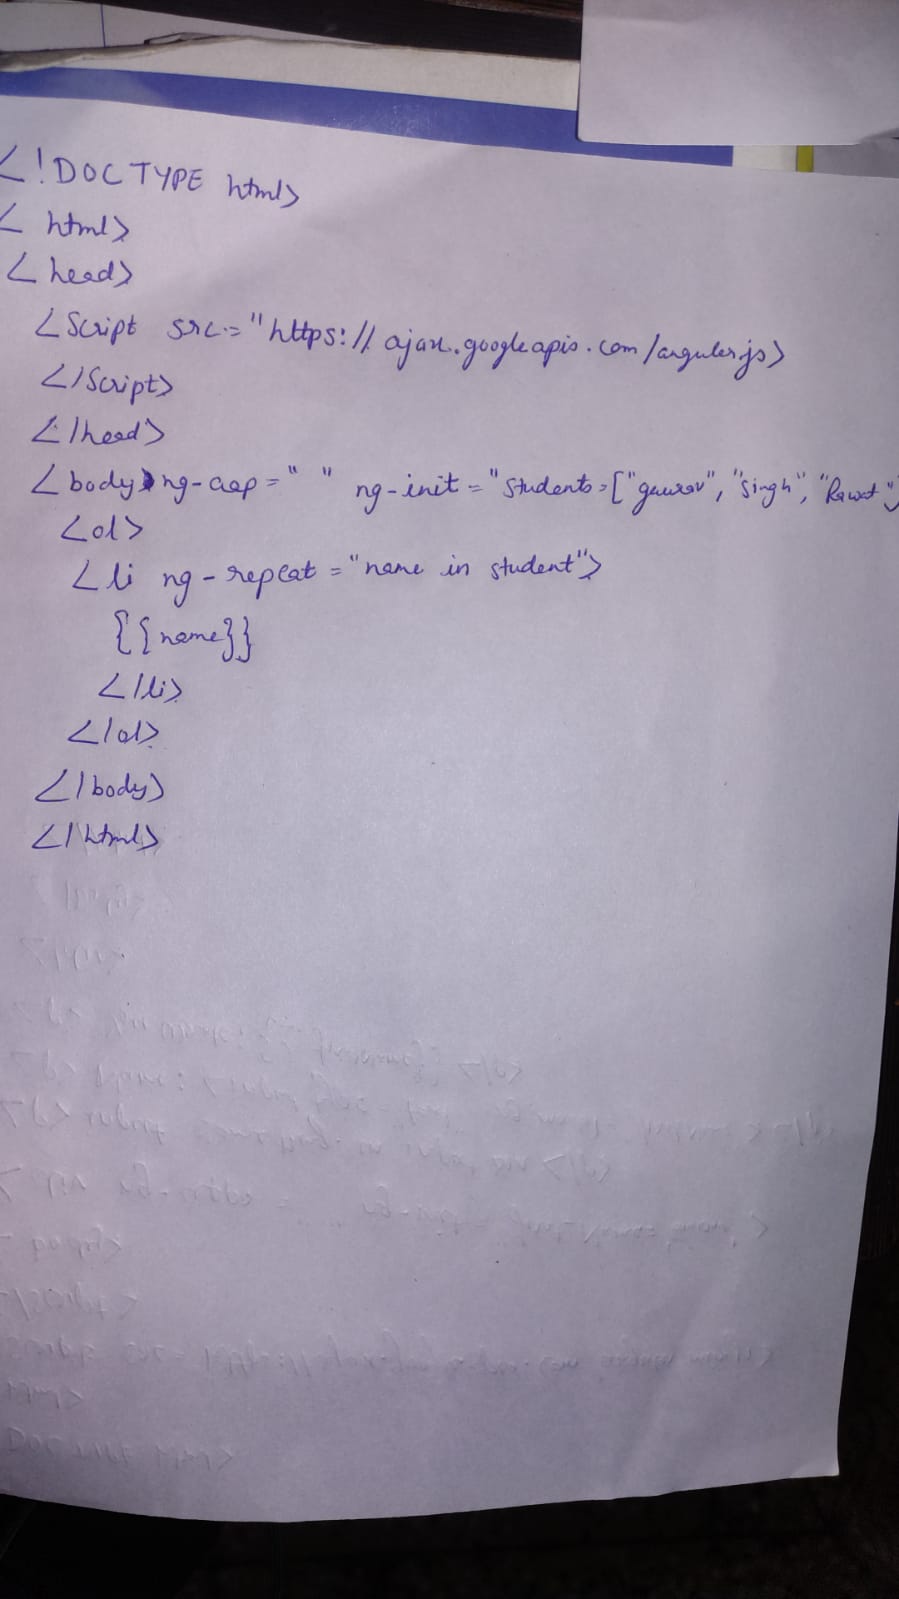 <!DOCTYPE html>
< html>
< head>
<Script src="https://ajax.googleapis.com/angular.js>
</Script>
</head>
<body ng-app=" " ng-init="Students=["gaurav", "Singh", "Rawat"
<ol>
<li ng-repeat="name in student">
{{name}}
</li>
</ol>
</body>
</html>